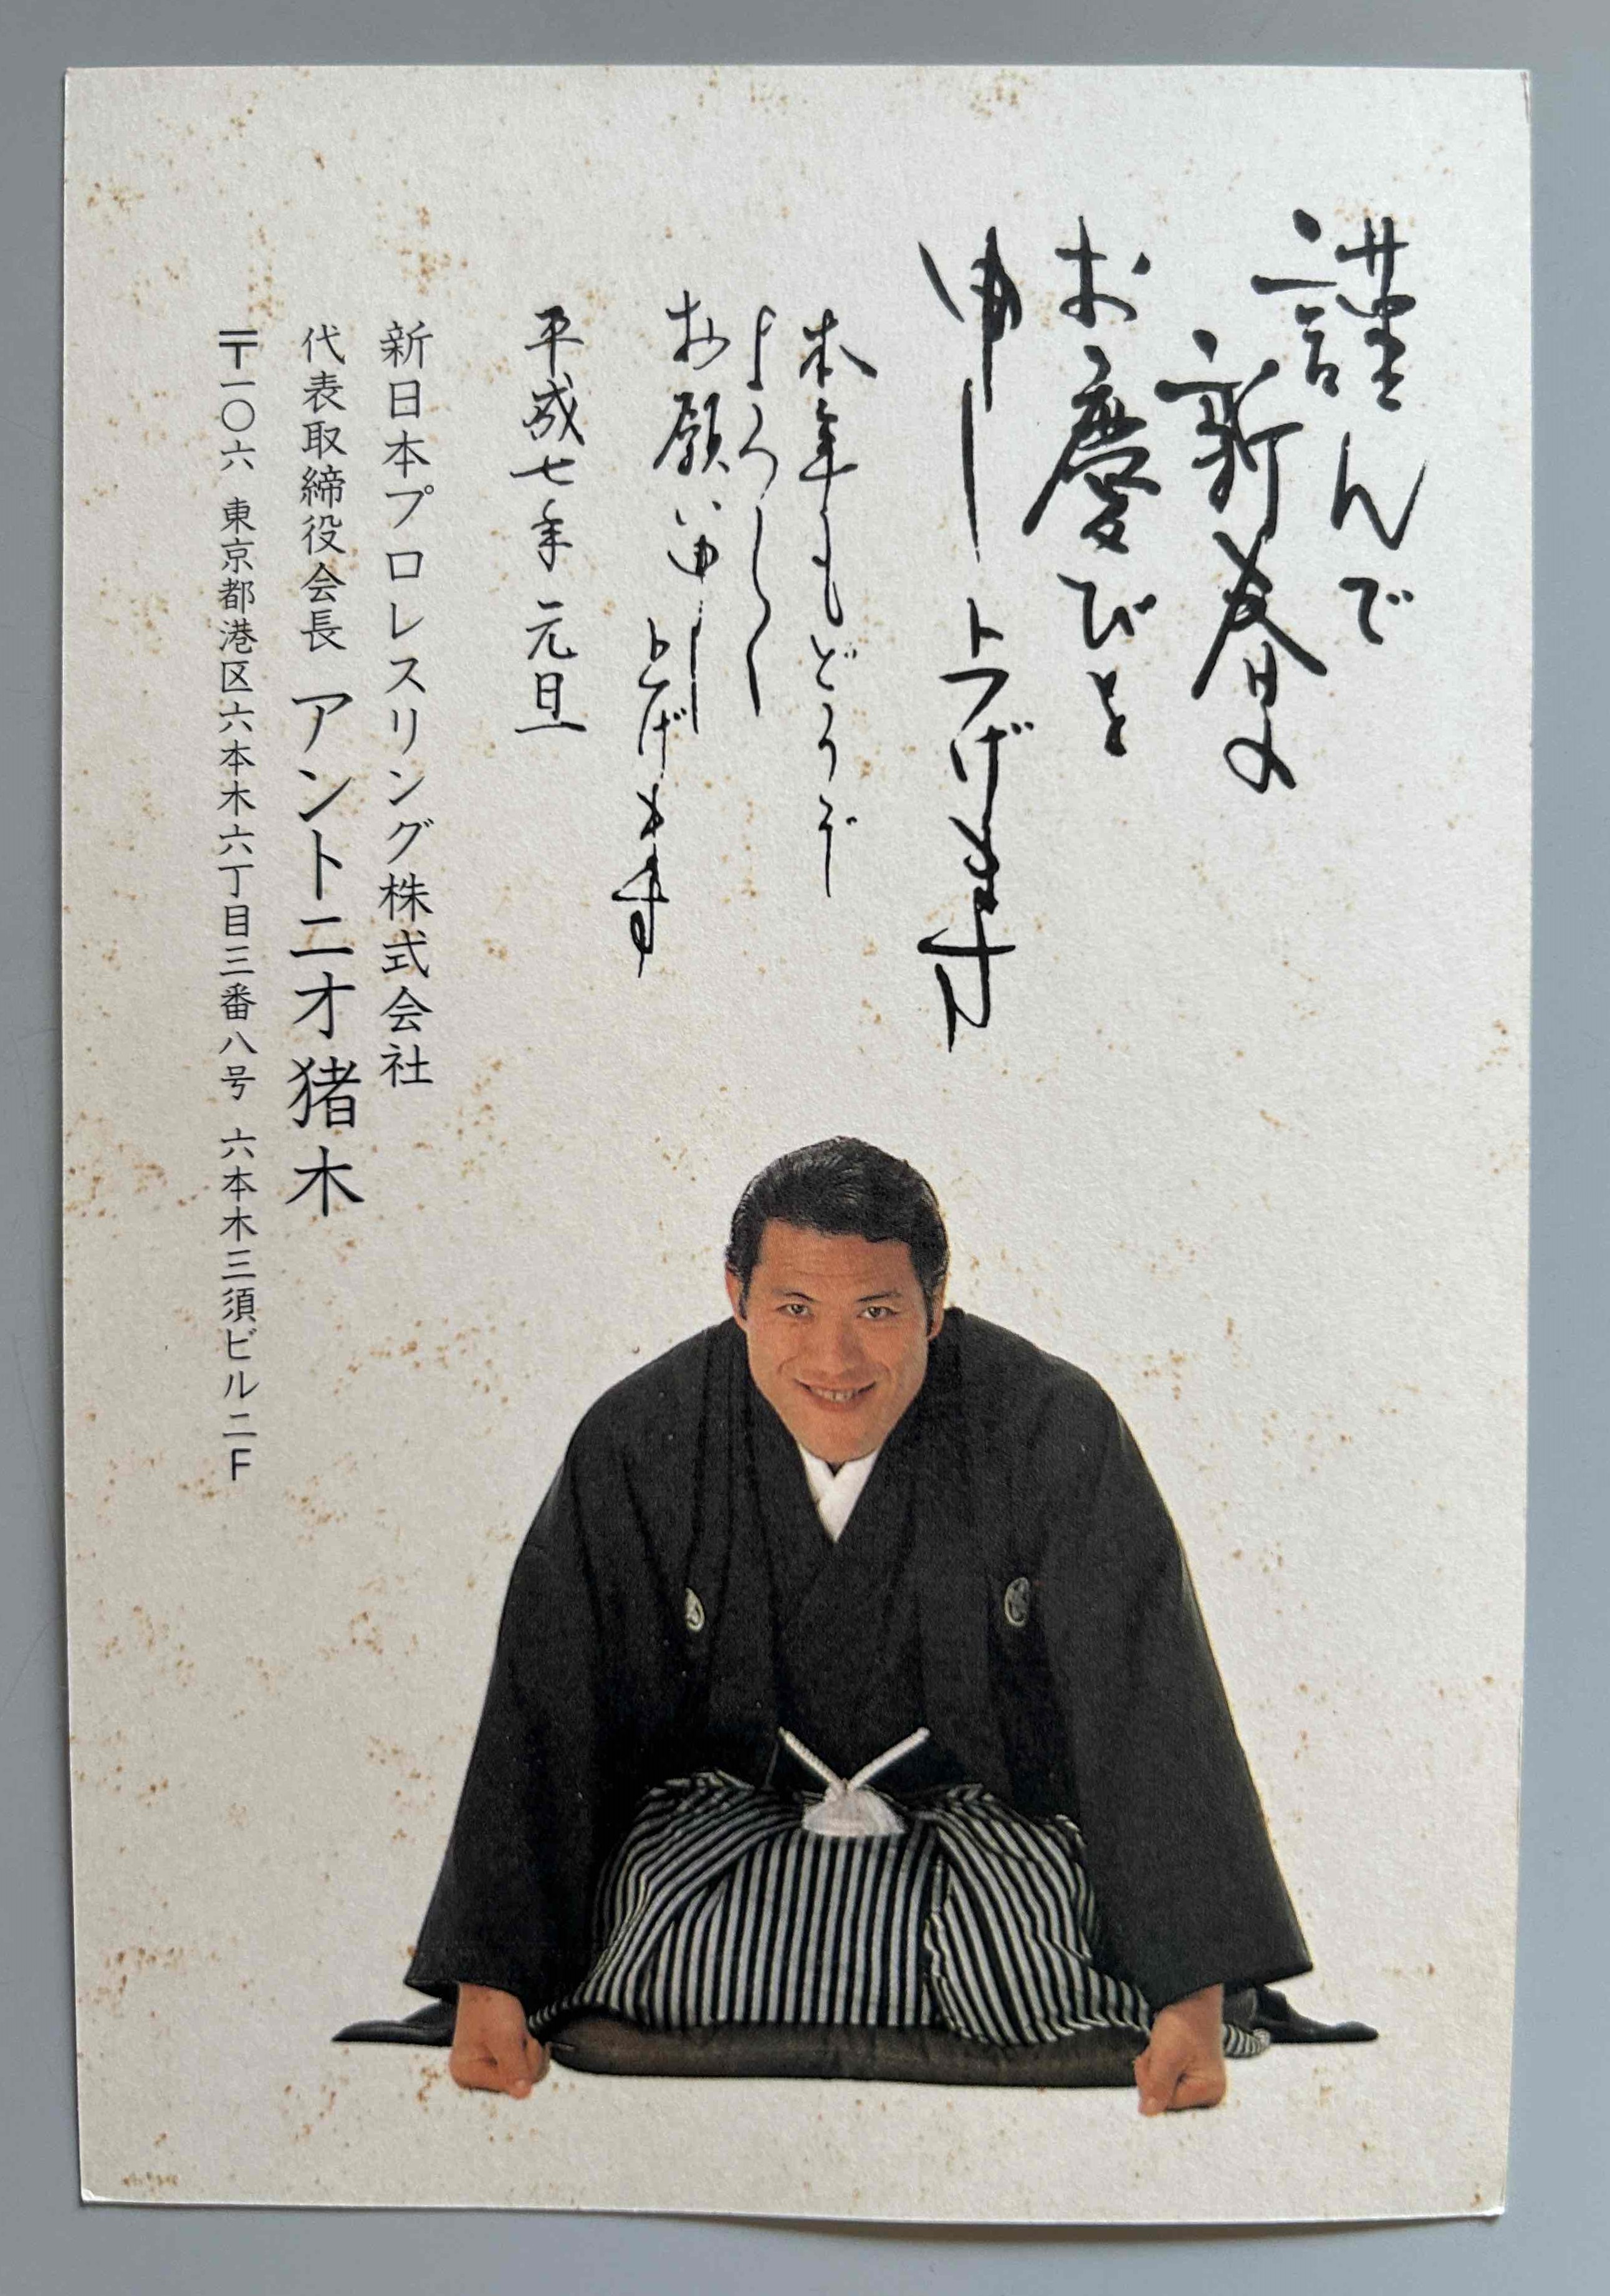 謹んで
新春の
お慶びを
申し上げます
本年もどうぞ
よろしく
お願い申し
上げます
平成七年 元旦
新日本プロレスリング株式会社
代表取締役会長 アントニオ猪木
〒一〇六 東京都港区六本木六丁目三番八号 六本木三須ビル二F